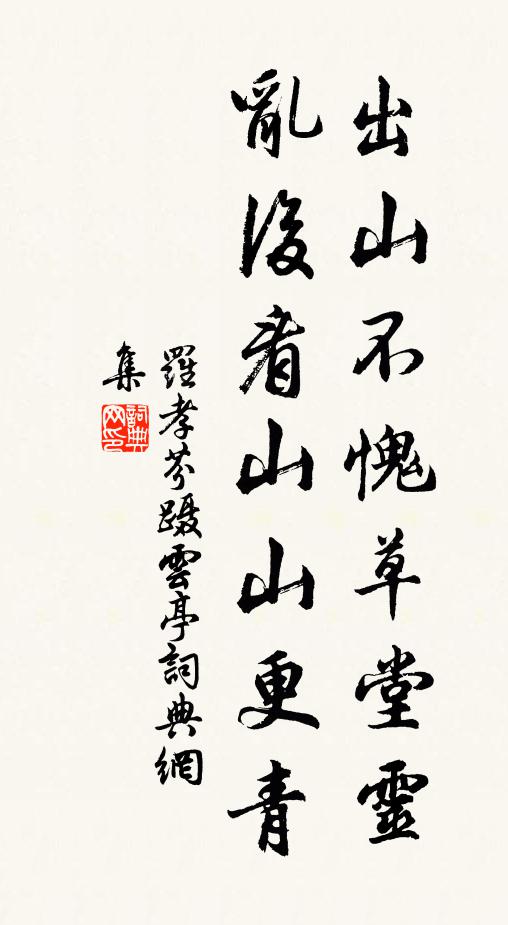 出山不愧草堂靈
亂後看山山更青
羅孝芬躡雲亭詞典網
集
詞典
网印